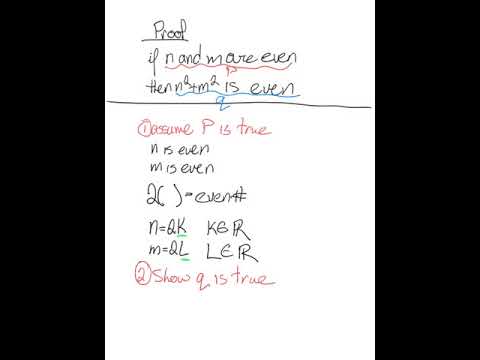 Proof
if n and m are even
P
then n²+m² is even
q
① assume P is true
n is even
m is even
2( ) = even #
n=2K K∈ℝ
m=2L L∈ℝ
② Show q is true